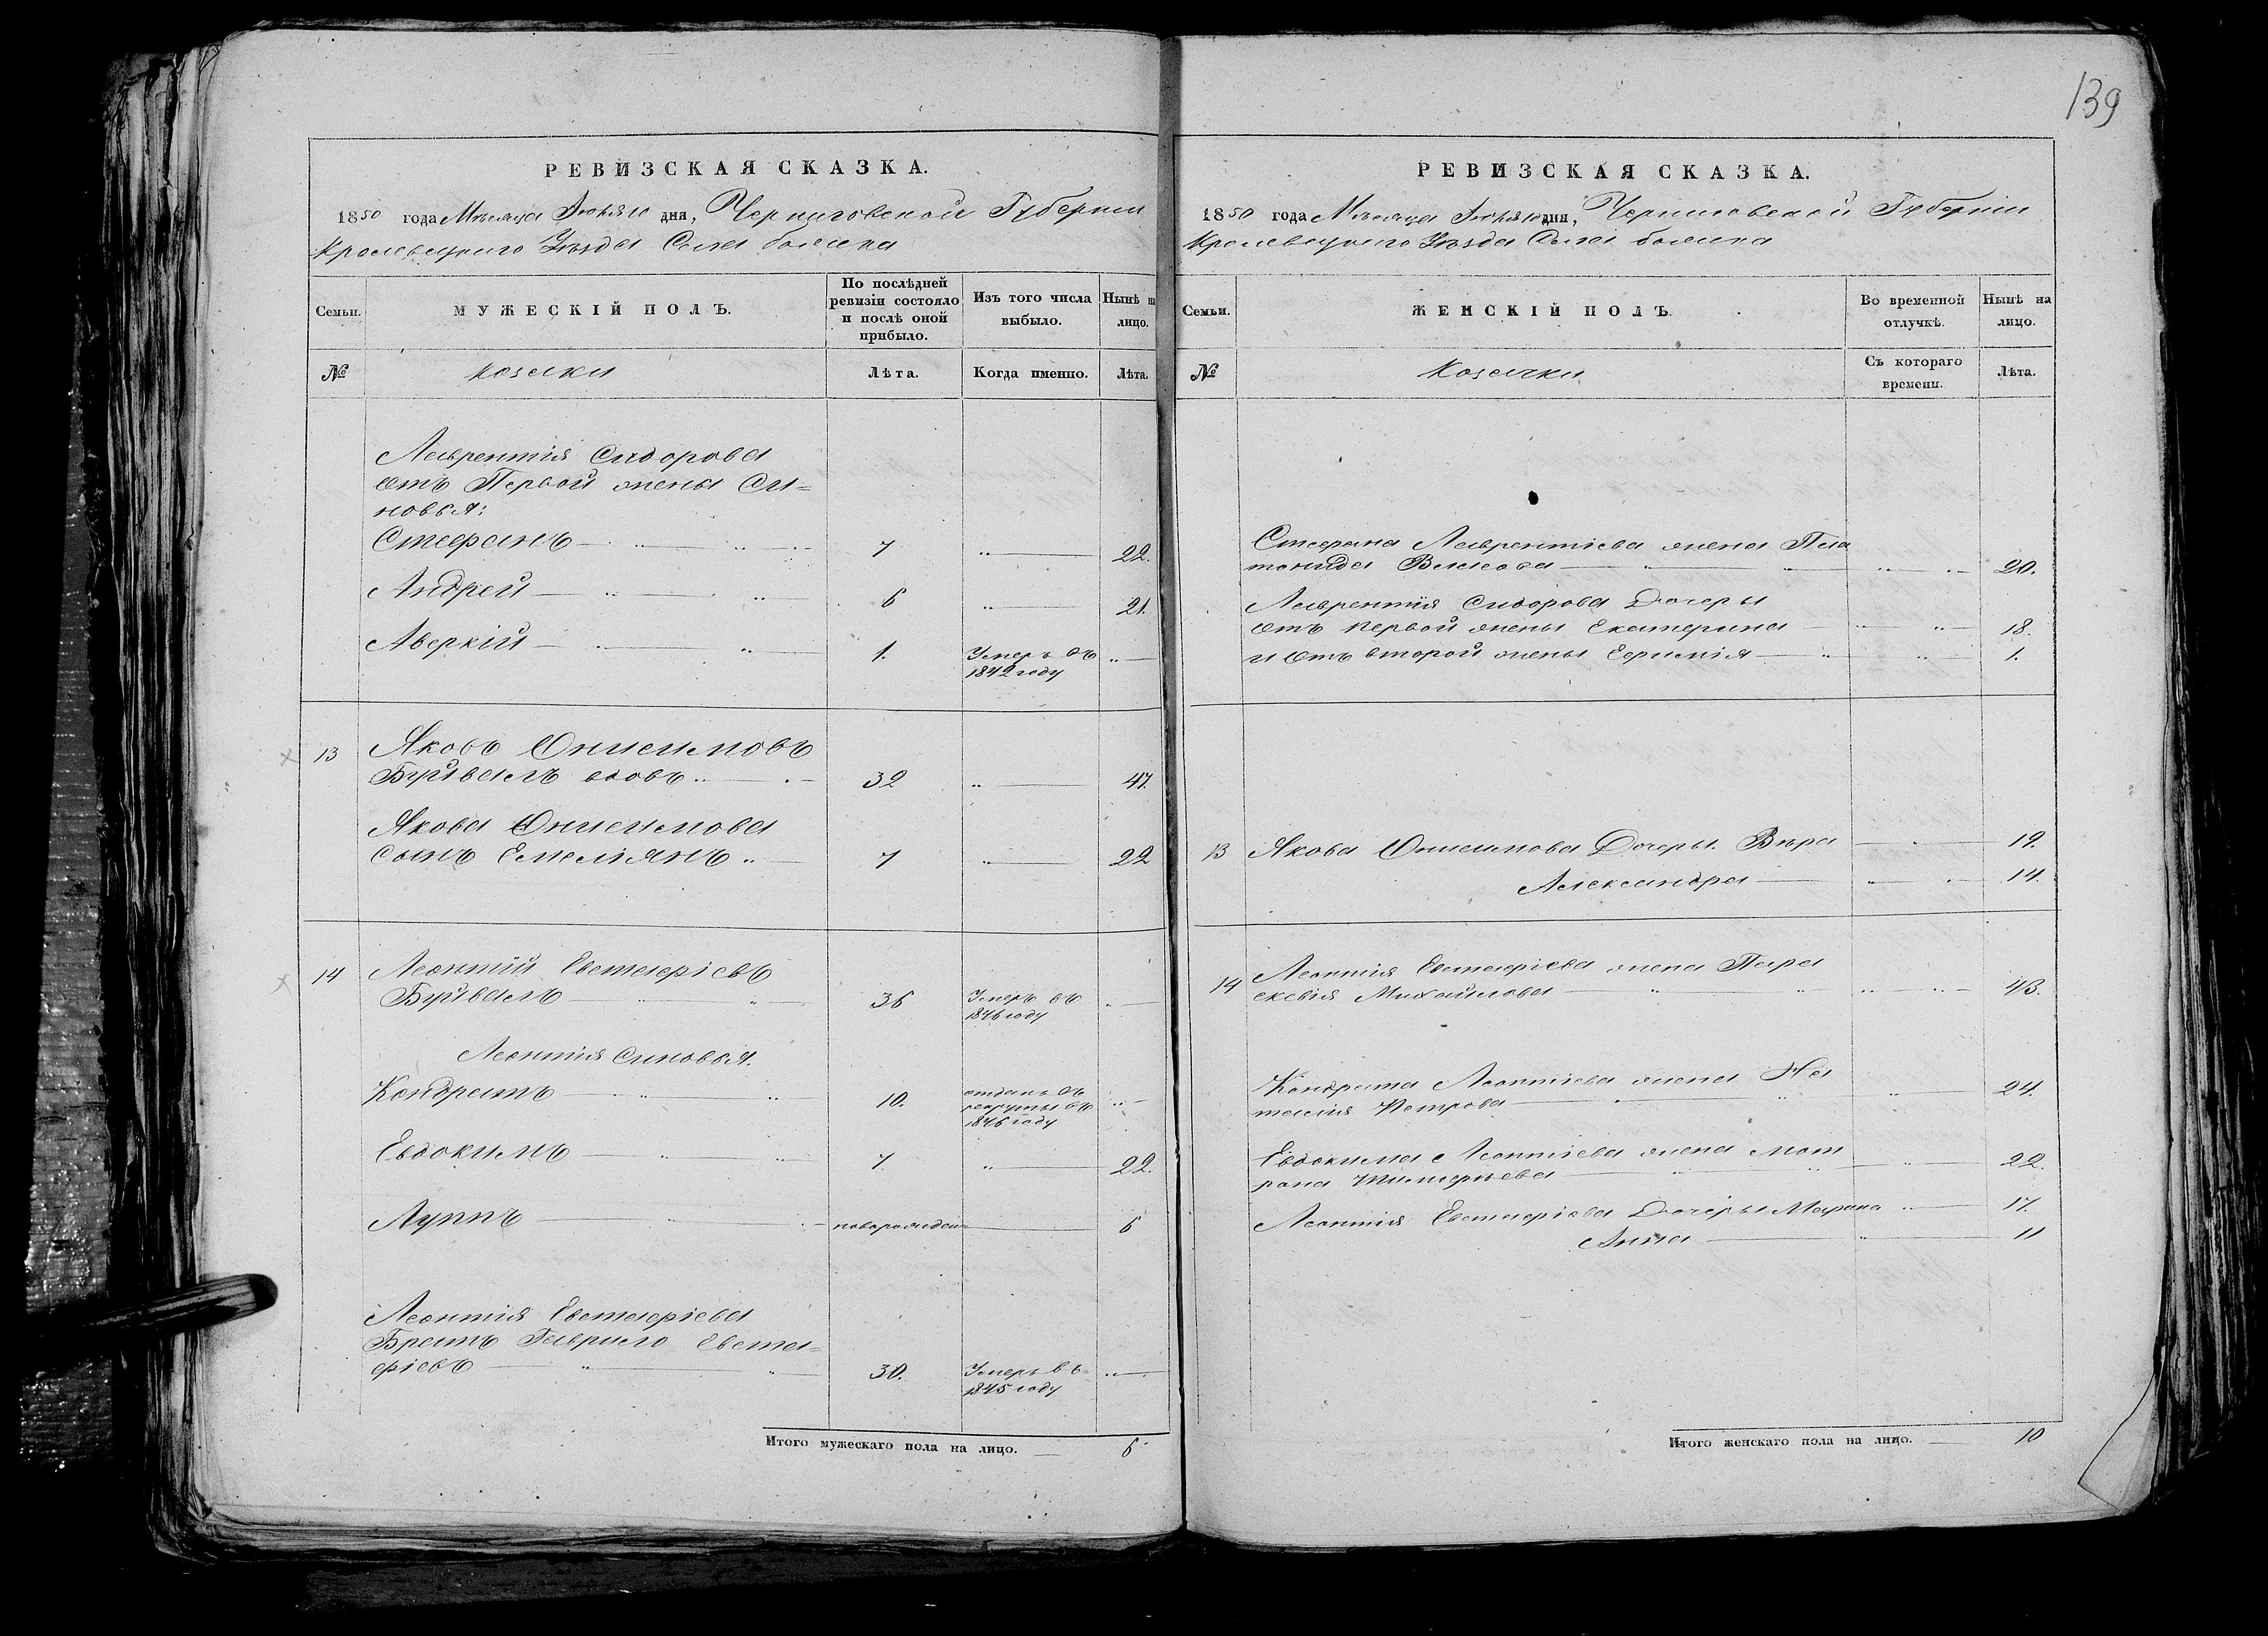 139
РЕВИЗСКАЯ СКАЗКА.
1850 года Месяца дня, Черниговской Губернии
Кролевецкого Уезда Села
Семьи.
МУЖЕСКІЙ ПОЛЪ.
По послѣдней ревизіи состояло и послѣ оной прибыло.
Изъ того числа выбыло.
Нынѣ на лицо.
№
козаки
Лѣта.
Когда именно.
Лѣта.
Лаврентія Сидорова
отъ Первой жены Си=
новья:
Стефанъ 7 22.
Андрей 6 21.
Аверкій 1. Умеръ въ
1842 году
13 Яковъ Онисимовъ
Буйвалъ вдовъ 32 47.
Якова Онисимова
сынъ Емеліянъ 7 22
14 Леонтій Евстафіевъ
Буйвалъ 36 Умеръ въ
1846 году
Леонтія Синовья.
Кондратъ 10. отданъ въ
рекруты въ
1846 году
Евдокимъ 7 22.
Луппъ новорожден= 6
Леонтія Евстафіева
Братъ Гаврило Евста=
фіевъ 30. Умеръ въ
1845 году
Итого мужескаго пола на лицо. 6
РЕВИЗСКАЯ СКАЗКА.
1850 года Месяца дня, Черниговской Губерніи
Кролевецкого Уезда Села
Семьи.
ЖЕНСКІЙ ПОЛЪ.
Во временной отлучкѣ.
Нынѣ на лицо.
№
Козачки
Съ котораго времени.
Лѣта.
Стефана Лаврентіева жена Пела
20.
Лаврентія Сидорова Дочеры
отъ первой жены Екатерина 18.
и отъ второй жены Ефимія 1.
13 Якова Онисимова Дочеры. Вѣра 19.
Александра 14.
14 Леонтія Евстафіева жена Пара
скевія Михайлова 43.
Кондрата Леонтіева жена На
талія Петрова 24.
Евдокима Леонтіева жена Мот
рона 22.
Леонтія Евстафіева Дочеры Марина 17.
Анна 11
Итого женскаго пола на лицо. 10